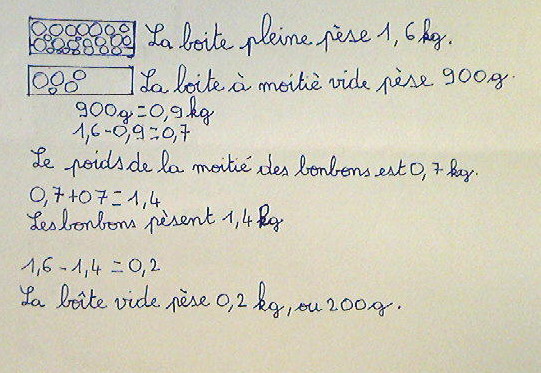 La boite pleine pèse 1,6 kg.
La boite à moitiè vide pèse 900g.
900g=0,9 kg
1,6-0,9=0,7
Le poids de la moitié des bonbons est 0,7 kg.
0,7+07=1,4
Les bonbons pèsent 1,4 kg
1,6-1,4=0,2
La boîte vide pèse 0,2 kg, ou 200g.